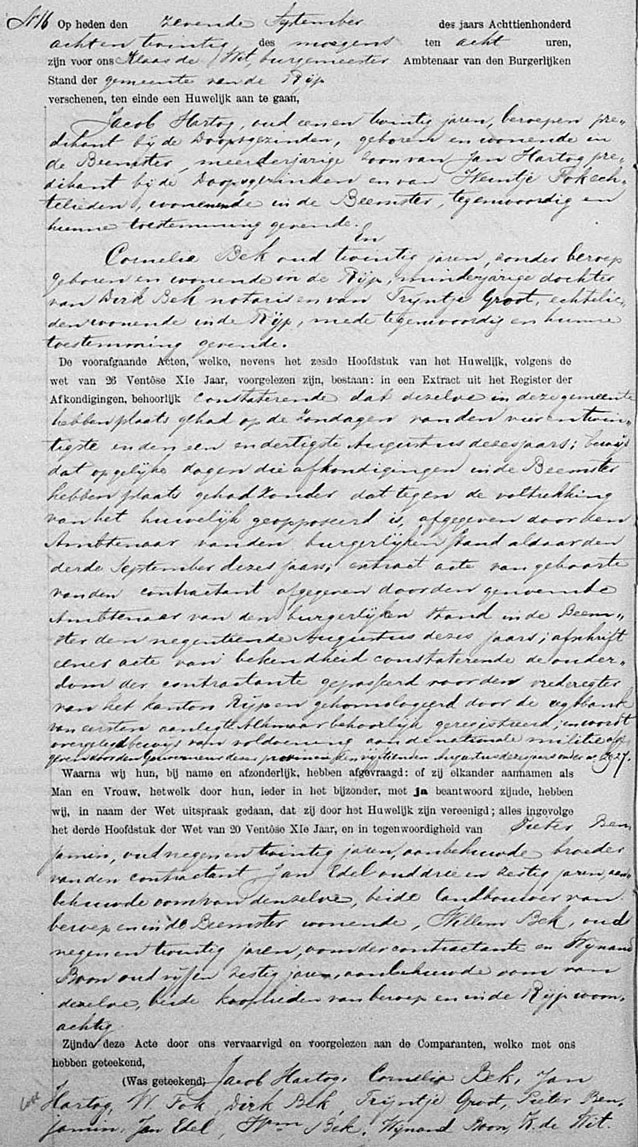 No 16 Op heden den zevende September des jaars Achttienhonderd
acht en twintig des morgens ten acht uren,
zijn voor ons Klaas de Wit burgemeester Ambtenaar van den Burgerlijken
Stand der gemeente van de Rijp
verschenen, ten einde een Huwelijk aan te gaan,
Jacob Hartog, oud een en twintig jaren, beroepen pre-
dikant bij de Doopsgezinden, geboren en wonende in
de Beemster, meerderjarige zoon van Jan Hartog pre-
dikant bij de Doopsgezinden en van Neeltje Fok ech-
telieden, wonende in de Beemster, tegenwoordig en
hunne toestemming gevende.
En
Cornelia Bek oud twintig jaren, zonder beroep
geboren en wonende in de Rijp, minderjarige dochter
van Dirk Bek notaris en van Trijntje Groot, echtelie-
den wonende in de Rijp, mede tegenwoordig en hunne
toestemming gevende.
De voorafgaande Acten, welke, nevens het zesde Hoofdstuk van het Huwelijk, volgens de
wet van 26 Ventôse XIe Jaar, voorgelezen zijn, bestaan: in een Extract uit het Register der
Afkondigingen, behoorlijk constaterende dat dezelve in deze gemeente
hebben plaats gehad op de zondagen van den vier en twin-
tigste en den een en dertigste Augustus dezes jaars; bewijs
dat op gelijke dagen die afkondigingen in de Beemster
hebben plaats gehad zonder dat tegen de voltrekking
van het huwelijk geopposeerd is, afgegeven door den
Ambtenaar van den burgerlijken stand aldaar den
derde September dezes jaars; extract acte van geboorte
van den contractant afgegeven door den genoemde
Ambtenaar van den burgerlijken stand in de Beem-
ster den negentiende Augustus dezes jaars; afschrift
eener acte van bekendheid constaterende de ouder-
dom der contractante gepasseerd voor den vrederegter
van het kanton Rijp en gehomologeerd door de regtbank
van eersten aanleg te Alkmaar behoorlijk geregistreerd; en wordt
overgelegd bewijs van voldoening aan de nationale militie afge-
geven door den Gouverneur dezer provincie den vijftienden Augustus dezes jaars
Waarna wij hun, bij name en afzonderlijk, hebben afgevraagd: of zij elkander aannamen als
Man en Vrouw, hetwelk door hun, ieder in het bijzonder, met ja beantwoord zijnde, hebben
wij, in naam der Wet uitspraak gedaan, dat zij door het Huwelijk zijn vereenigd; alles ingevolge
het derde Hoofdstuk der Wet van 20 Ventôse XIe Jaar, en in tegenwoordigheid van Pieter Ben-
jamin, oud negen en twintig jaren, aanbehuwde broeder
van den contractant Jan Edel oud drie en zestig jaren, aan-
behuwde oom van denzelve, beide landbouwer van
beroep en in de Beemster wonende, Willem Bek, oud
negen en twintig jaren, oom der contractante en Wijnand
Boon oud vijf en zestig jaren, aanbehuwde oom van
dezelve, beide kooplieden van beroep en in de Rijp woon-
achtig
Zijnde deze Acte door ons vervaarvigd en voorgelezen aan de Comparanten, welke met ons
hebben geteekend,
(Was geteekend) Jacob Hartog. Cornelia Bek. Jan
Hartog, N. Fok, Dirk Bek, Trijntje Groot, Pieter Ben-
jamin, Jan Edel, Wm Bek, Wijnand Boon, K. de Wit.